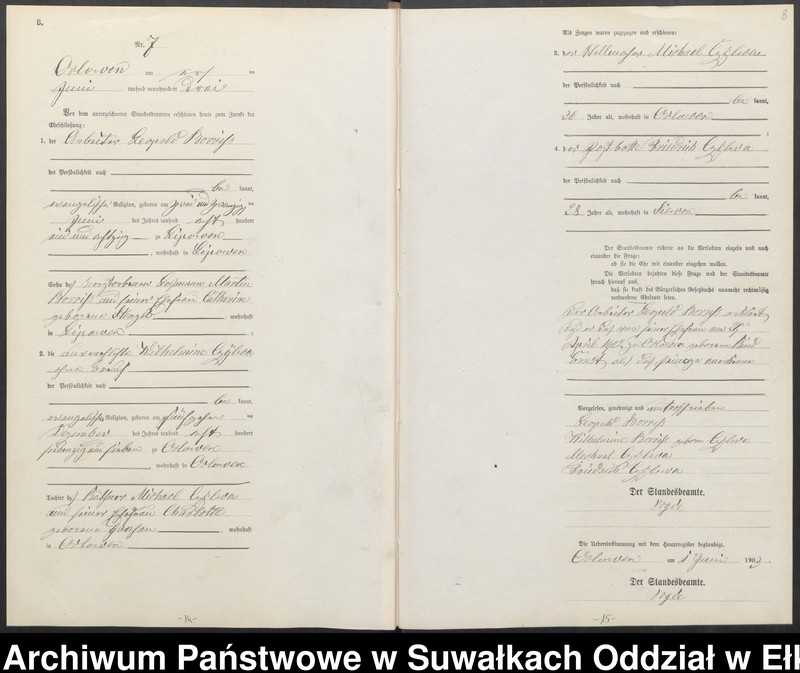 B.
Nr. 7
Orlowen am ersten
Juni tausend neunhundert drei
Vor dem unterzeichneten Standesbeamten erschienen heute zum Zwecke der
Eheschließung:
1. der Arbeiter Leopold Borriß
der Persönlichkeit nach
be kannt,
evangelischer Religion, geboren am zwei und zwanzigsten
Juni des Jahres tausend acht hundert
und achtzig in Lipowen
, wohnhaft in Lipowen
Sohn des verstorbenen Martin
Borriß und seiner Ehefrau Catharine
geborene wohnhaft
in Lipowen ;
2. die unverehelichte Wilhelmine Czyliwa
ohne Beruf
der Persönlichkeit nach
be kannt,
evangelischer Religion, geboren am fünfzehnten
Dezember des Jahres tausend acht hundert
siebenzig und sieben in Orlowen
, wohnhaft in Orlowen
Tochter des Michael Czyliwa
und seiner Ehefrau Charlotte
geborene wohnhaft
in Orlowen
-14-
8
Als Zeugen waren zugezogen und erschienen:
3. der Michael Czyliwa
der Persönlichkeit nach
be kannt,
30 Jahre alt, wohnhaft in Orlowen
;
4. der Postbote Friedrich Czyliwa
der Persönlichkeit nach
be kannt,
28 Jahre alt, wohnhaft in
Der Standesbeamte richtete an die Verlobten einzeln und nach
einander die Frage:
ob sie die Ehe mit einander eingehen wollen.
Die Verlobten bejahten diese Frage und der Standesbeamte
sprach hierauf aus,
daß sie kraft des Bürgerlichen Gesetzbuchs nunmehr rechtmäßig
verbundene Eheleute seien.
Der Arbeiter Leopold Borriß erklärt
daß er das von seiner Ehefrau am
April 1902 zu Orlowen geborene Kind
Ernst als das seinige anerkenne
Vorgelesen, genehmigt und unterschrieben
Leopold Borriß
Wilhelmine Borriß geborene Czyliwa
Michael Czyliwa
Friedrich Czyliwa
Der Standesbeamte.
Die Uebereinstimmung mit dem Hauptregister beglaubigt.
Orlowen am 1 Juni 1903.
Der Standesbeamte.
-15-
Archiwum Państwowe w Suwałkach Oddział w Ełk